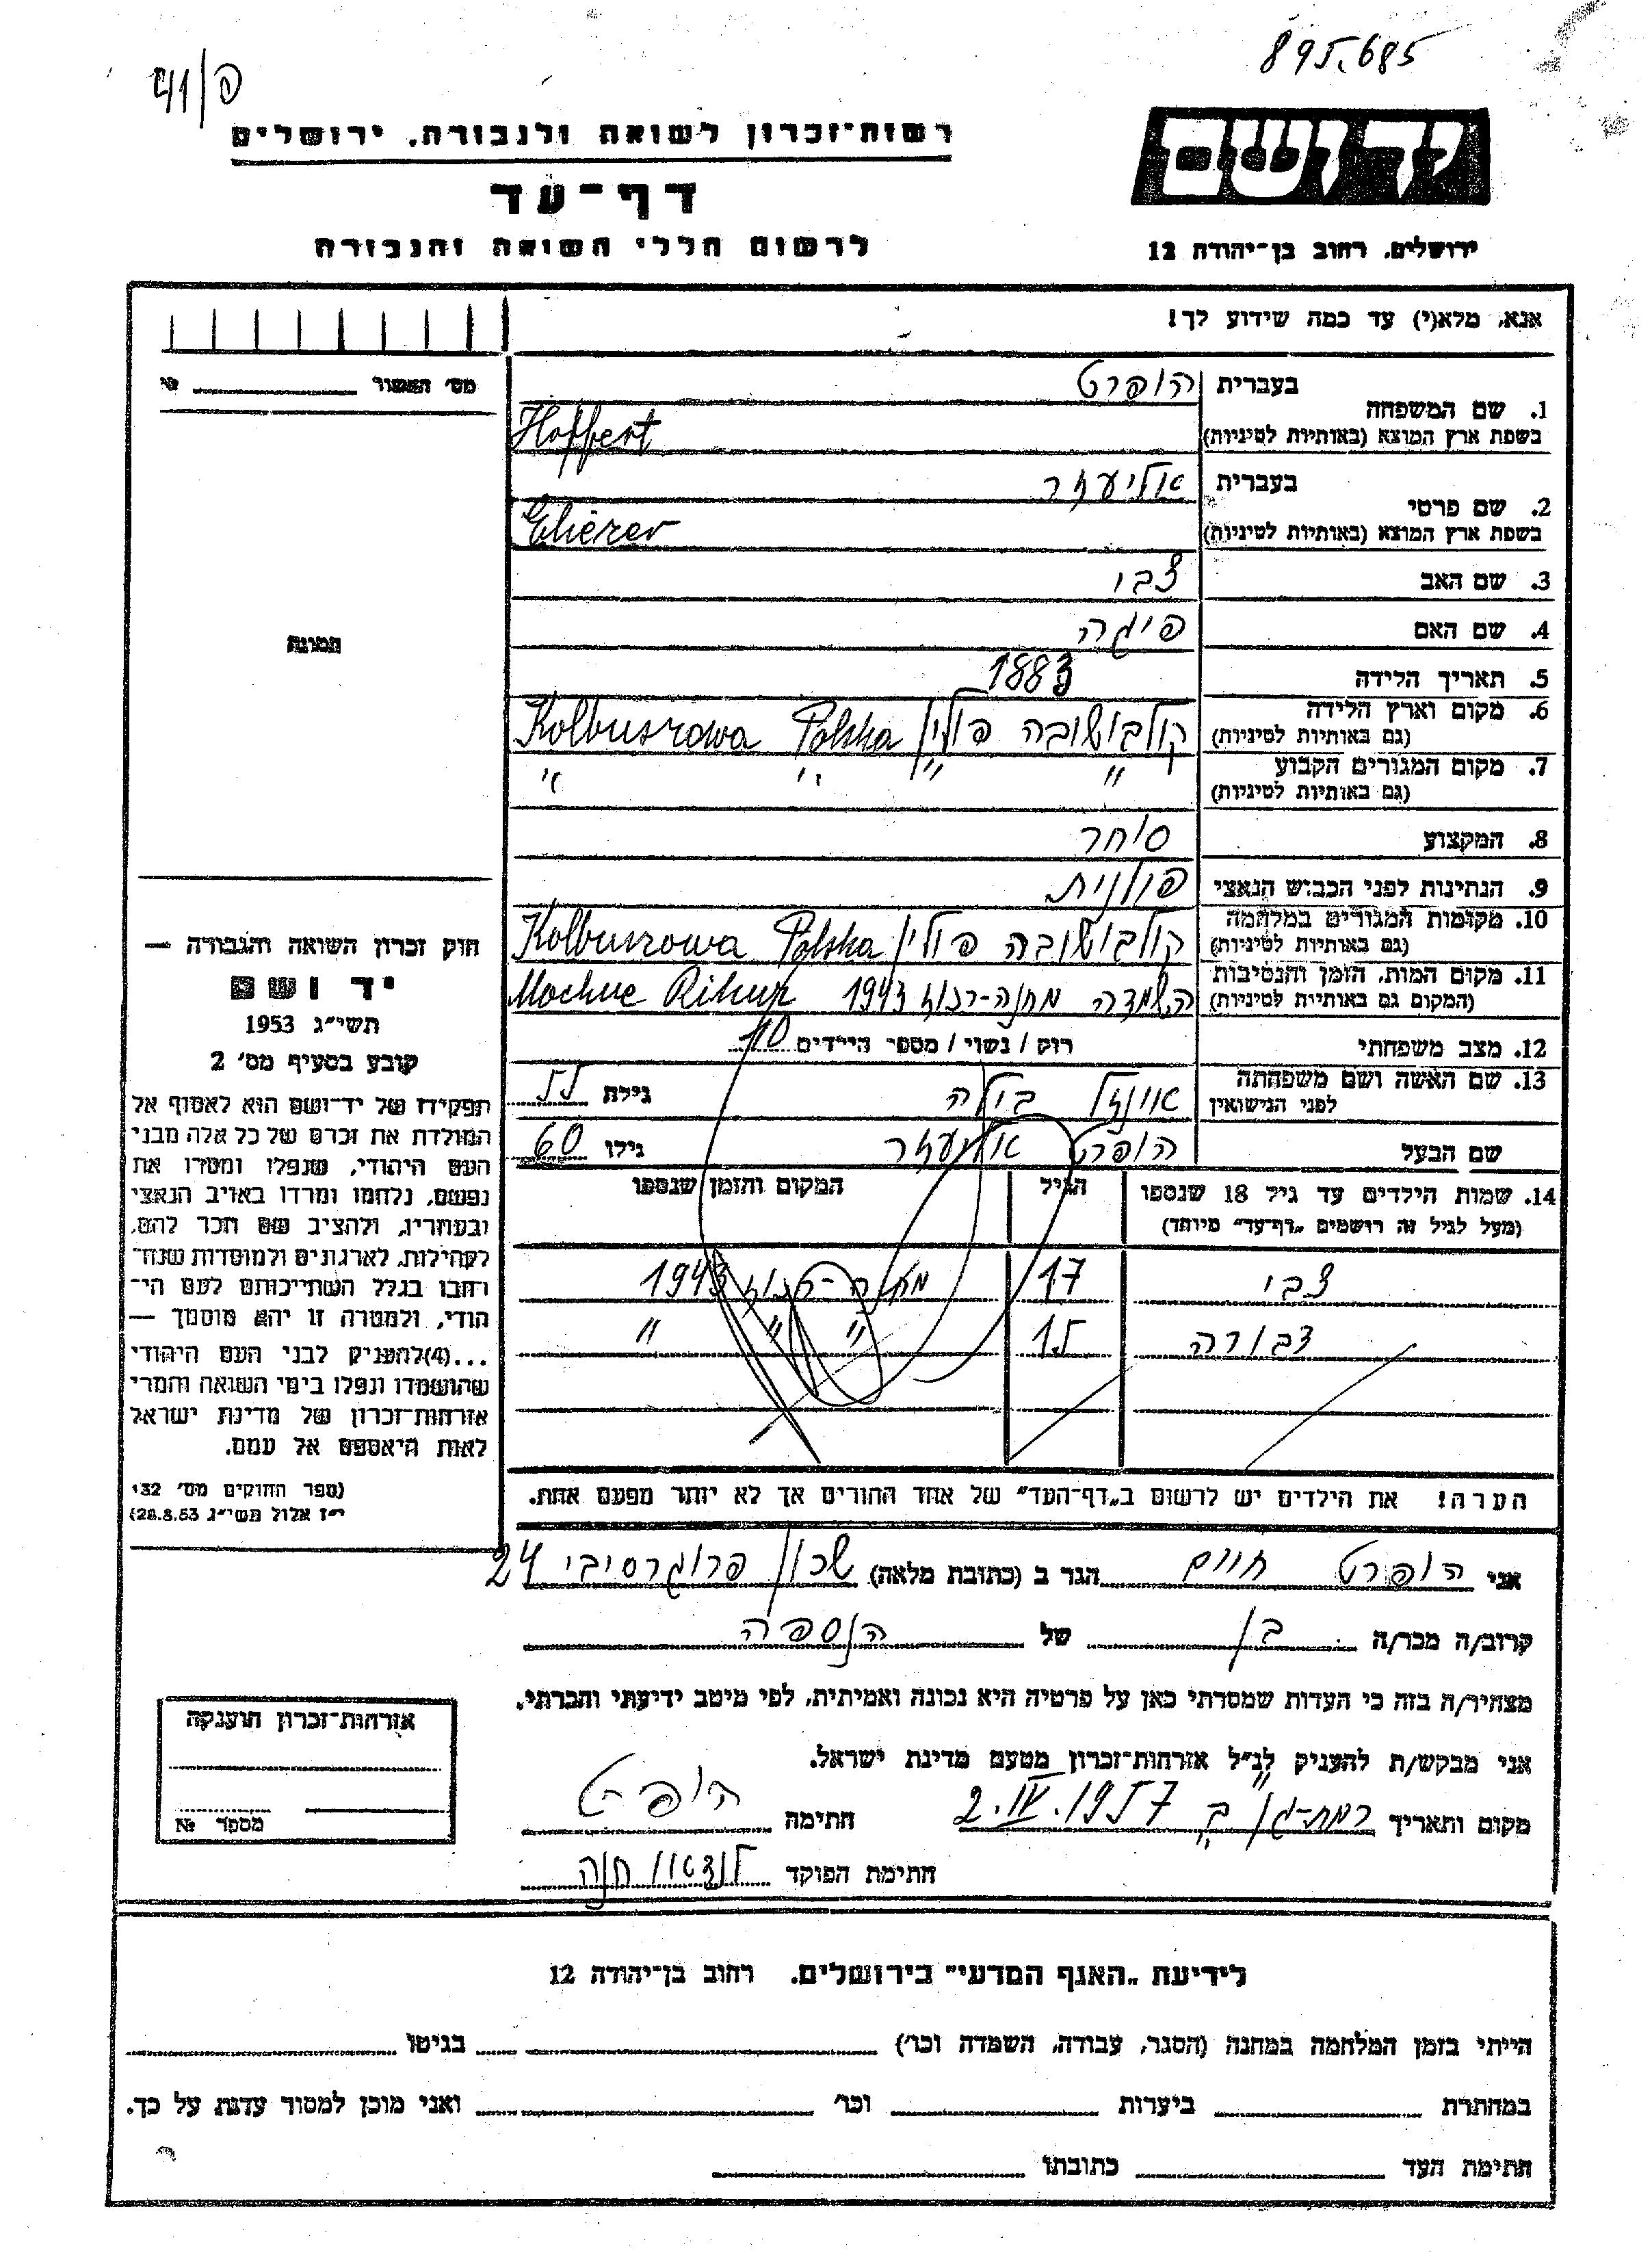 895.685
פ/41
ידושם
רשות־זכרון לשואה ולגבורה. ירושלים
דף־עד
לרשום חללי השואה והגבורה
ירושלים. רחוב בן־יהודה 12
אנא, מלא(י) עד כמה שידוע לך!
מס׳ האשור № 
1. שם המשפחה
בעברית הופרט
בשפת ארץ המוצא (באותיות לטיניות) Hoffert
2. שם פרטי
בעברית אליעזר
בשפת ארץ המוצא (באותיות לטיניות) Eliezer
3. שם האב צבי
4. שם האם פיגה
5. תאריך הלידה 1883
6. מקום וארץ הלידה (גם באותיות לטיניות) קולבושובה פולין Polska Kolbuszowa
7. מקום המגורים הקבוע (גם באותיות לטיניות) " " " "
8. המקצוע סוחר
9. הנתינות לפני הכבוש הנאצי פולנית
10. מקומות המגורים במלחמה (גם באותיות לטיניות) קולבושובה פולין Polska Kolbuszowa
11. מקום המות, הזמן והנסיבות (המקום גם באותיות לטיניות) השמדה 1943
12. מצב משפחתי רוק / נשוי / מספר הילדים 10
13. שם האשה ושם משפחתה לפני הנישואין בילה גילה 55
שם הבעל הופרט אליעזר גילו 60
14. שמות הילדים עד גיל 18 שנספו (מעל לגיל זה רושמים „דף־עד" מיוחד) הגיל המקום והזמן שנספו
צבי 17 1943
דבורה 15 " " "
הערה! את הילדים יש לרשום ב„דף־העד" של אחד ההורים אך לא יותר מפעם אחת.
תמונה
חוק זכרון השואה והגבורה —
יד ושם
תשי״ג 1953
קובע בסעיף מס׳ 2
תפקידו של יד־ושם הוא לאסוף אל
המולדת את זכרם של כל אלה מבני
העם היהודי, שנפלו ומסרו את
נפשם, נלחמו ומרדו באויב הנאצי
ובעוזריו, ולהציב שם וזכר להם,
לקהילות, לארגונים ולמוסדות שנח־
רבו בגלל השתייכותם לעם הי־
הודי, ולמטרה זו יהא מוסמך —
...(4)להעניק לבני העם היהודי
שהושמדו ונפלו בימי השואה והמרי
אזרחות־זכרון של מדינת ישראל
לאות היאספם אל עמם.
(ספר החוקים מס׳ 132
י״ז אלול תשי״ג 28.8.53)
אני הופרט חיים הגר ב (כתובת מלאה) שכון פרוגרסיבי 24
קרוב/ה מכר/ה בן של הנספה
מצהיר/ה בזה כי העדות שמסרתי כאן על פרטיה היא נכונה ואמיתית, לפי מיטב ידיעתי והכרתי.
אני מבקש/ת להעניק לנ״ל אזרחות־זכרון מטעם מדינת ישראל.
מקום ותאריך רמת־גן 2.IV.1957 חתימה הופרט
חתימת הפוקד לנדאו חנה
אזרחות־זכרון הוענקה
מספר №
לידיעת „האגף המדעי" בירושלים. רחוב בן־יהודה 12
הייתי בזמן המלחמה במחנה (הסגר, עבודה, השמדה וכו׳) בגיטו
במחתרת ביערות וכו׳ ואני מוכן למסור עדות על כך.
חתימת העד כתובתו